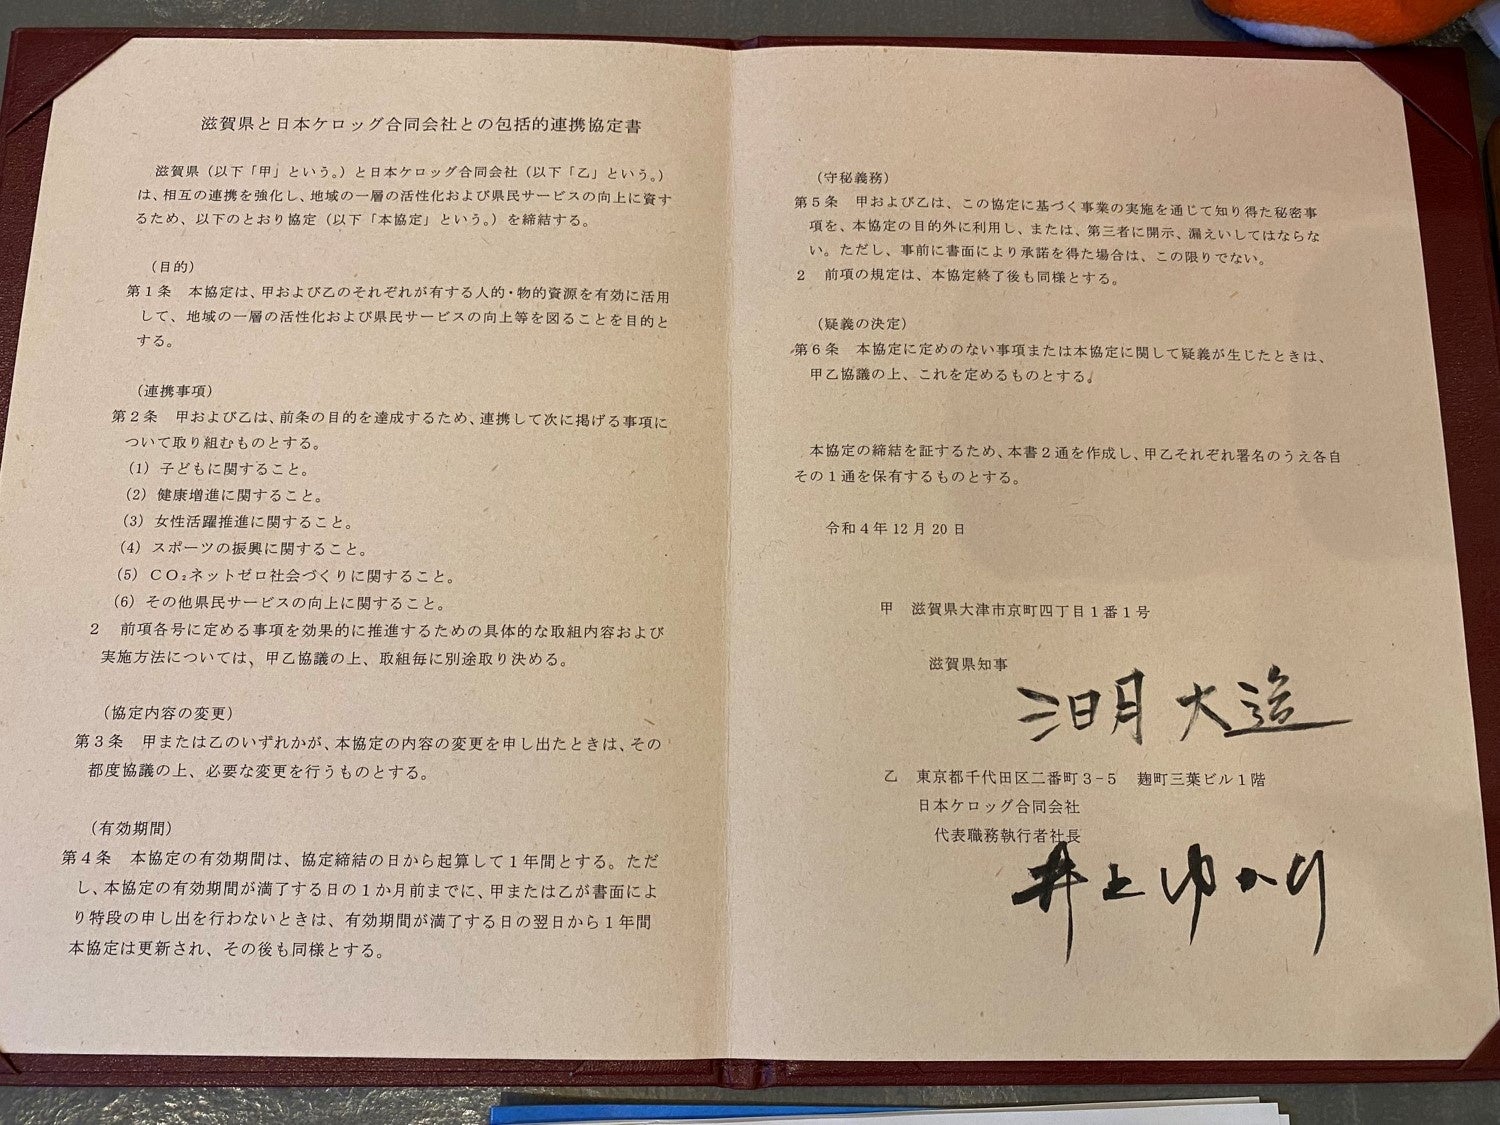 滋賀県と日本ケロッグ合同会社との包括的連携協定書
滋賀県（以下「甲」という。）と日本ケロッグ合同会社（以下「乙」という。）
は、相互の連携を強化し、地域の一層の活性化および県民サービスの向上に資す
るため、以下のとおり協定（以下「本協定」という。）を締結する。
（目的）
第１条　本協定は、甲および乙のそれぞれが有する人的・物的資源を有効に活用
して、地域の一層の活性化および県民サービスの向上等を図ることを目的と
する。
（連携事項）
第２条　甲および乙は、前条の目的を達成するため、連携して次に掲げる事項に
ついて取り組むものとする。
(1) 子どもに関すること。
(2) 健康増進に関すること。
(3) 女性活躍推進に関すること。
(4) スポーツの振興に関すること。
(5) ＣＯ₂ネットゼロ社会づくりに関すること。
(6) その他県民サービスの向上に関すること。
２　前項各号に定める事項を効果的に推進するための具体的な取組内容および
実施方法については、甲乙協議の上、取組毎に別途取り決める。
（協定内容の変更）
第３条　甲または乙のいずれかが、本協定の内容の変更を申し出たときは、その
都度協議の上、必要な変更を行うものとする。
（有効期間）
第４条　本協定の有効期間は、協定締結の日から起算して１年間とする。ただ
し、本協定の有効期間が満了する日の１か月前までに、甲または乙が書面によ
り特段の申し出を行わないときは、有効期間が満了する日の翌日から１年間
本協定は更新され、その後も同様とする。
（守秘義務）
第５条　甲および乙は、この協定に基づく事業の実施を通じて知り得た秘密事
項を、本協定の目的外に利用し、または、第三者に開示、漏えいしてはならな
い。ただし、事前に書面により承諾を得た場合は、この限りでない。
２　前項の規定は、本協定終了後も同様とする。
（疑義の決定）
第６条　本協定に定めのない事項または本協定に関して疑義が生じたときは、
甲乙協議の上、これを定めるものとする。
本協定の締結を証するため、本書２通を作成し、甲乙それぞれ署名のうえ各自
その１通を保有するものとする。
令和４年 12 月 20 日
甲　滋賀県大津市京町四丁目１番１号
滋賀県知事
三日月 大造
乙　東京都千代田区二番町３-５　麹町三葉ビル１階
日本ケロッグ合同会社
代表職務執行者社長
井上ゆかり